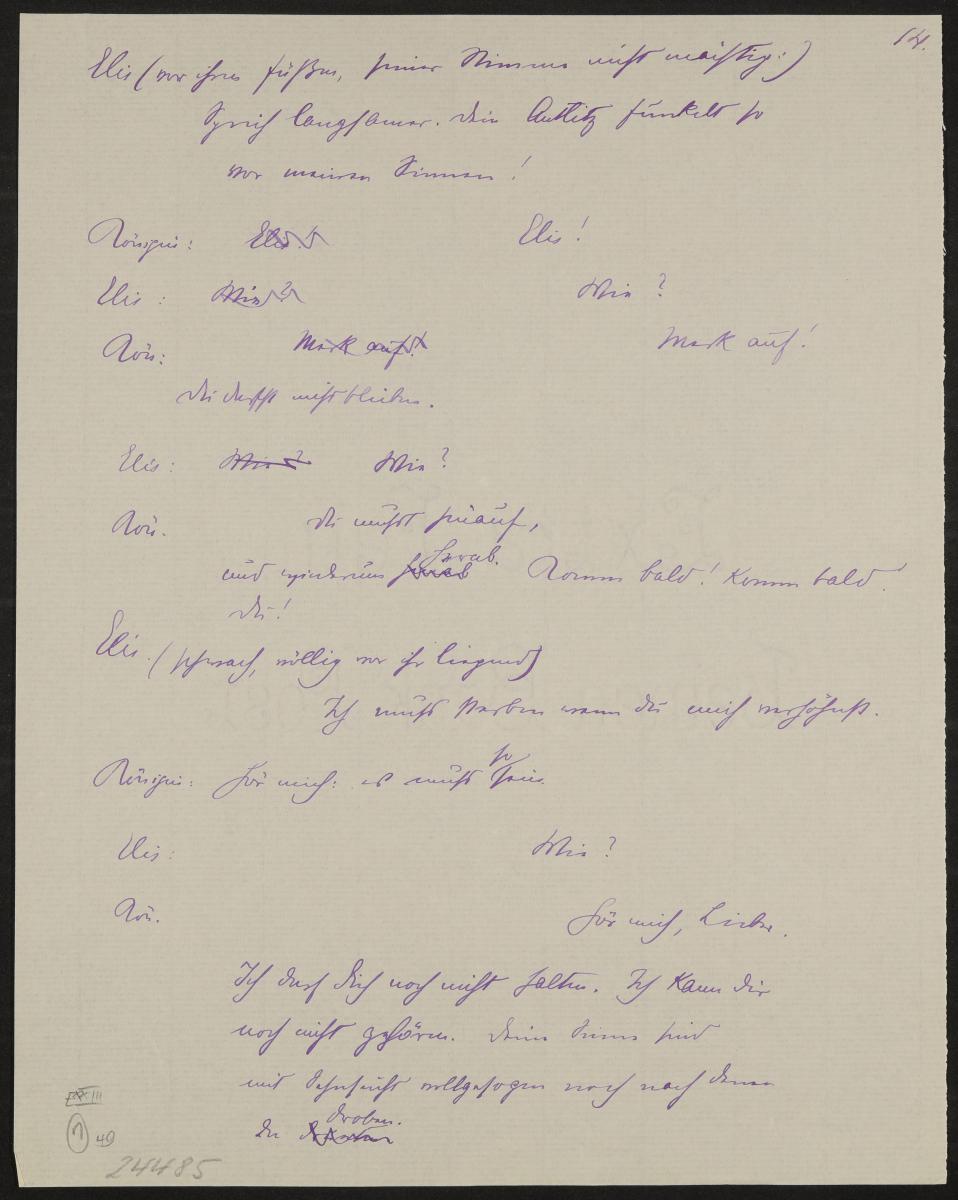 14.
Elis (vor ihren Füßen, seiner Stimme nicht mächtig:)
Sprich langsamer. Dein Antlitz funkelt so
vor meinen Sinnen!
Königin: Elis! Elis!
Elis: Wie? Wie?
Kön: Merk auf! Merk auf!
Du darfst nicht bleiben.
Elis: Wie? Wie?
Kön. Du musst hinauf,
herab.
und wiederum hinab Komm bald! Komm bald
du!
Elis. (schwach, völlig vor ihr liegend)
Ich muss sterben wenn du mich verhöhnst.
so
Königin: Hör mich: es muss sein.
Elis: Wie?
Kön. Hör mich, Lieber.
Ich darf dich noch nicht halten. Ich kann dir
noch nicht gehören. Deine Sinne sind
mit Sehnsucht vollgesogen noch nach denen
droben.
da
III
49
24485